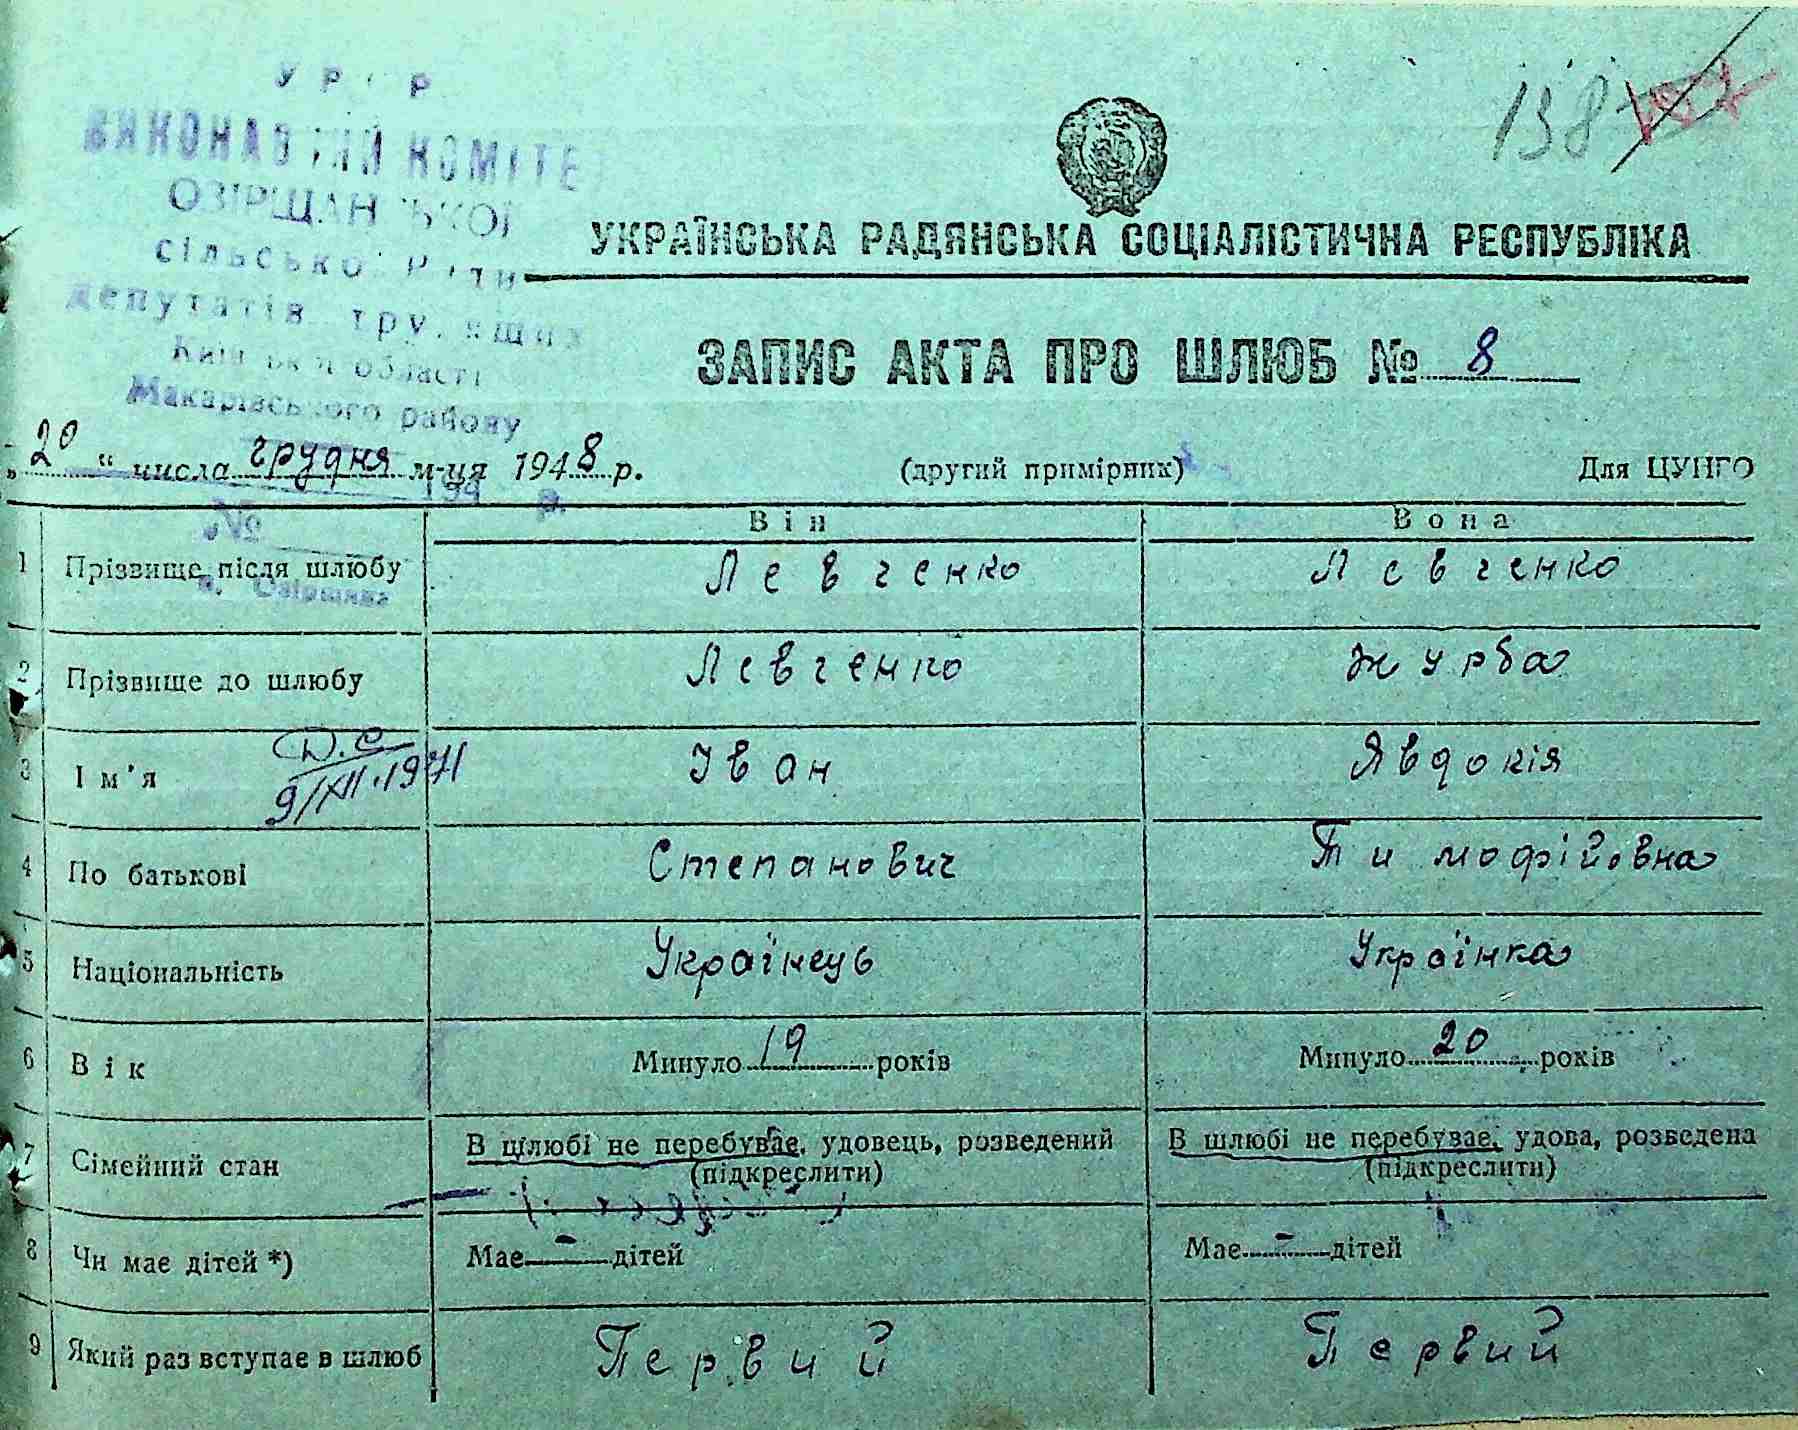 УРСР
ВИКОНАВЧИЙ КОМІТЕТ
ОЗІРЩАНСЬКОЇ
сільської Ради
депутатів трудящих
Київської області
Макарівського району
194 р.
№
с. Озірщина
138
УКРАЇНСЬКА РАДЯНСЬКА СОЦІАЛІСТИЧНА РЕСПУБЛІКА
ЗАПИС АКТА ПРО ШЛЮБ № 8
„20“ числа грудня м-ця 1948 р. (другий примірник) Для ЦУНГО
Він Вона
1 Прізвище після шлюбу Левченко Левченко
2 Прізвище до шлюбу Левченко Журба
3 Ім'я Іван Явдокія
Д.С
9/XII.1971
4 По батькові Степанович Тимофійовна
5 Національність Українець Українка
6 Вік Минуло 19 років Минуло 20 років
7 Сімейний стан В шлюбі не перебуває, удовець, розведений В шлюбі не перебуває, удова, розведена
(підкреслити) (підкреслити)
8 Чи має дітей *) Має - дітей Має - дітей
9 Який раз вступає в шлюб Первий Первий